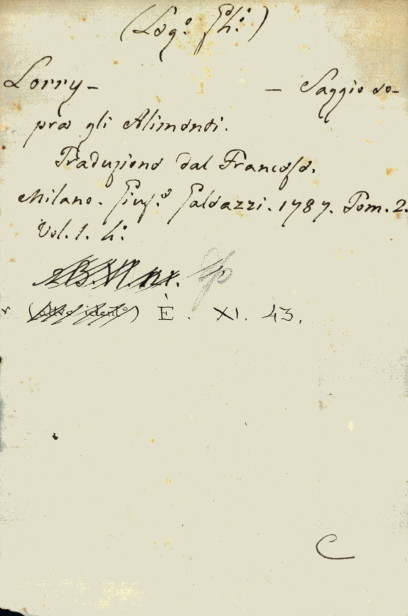 (Leg.º Gh.i)
Lorry - - Saggio so-
pra gli Alimenti.
Traduzione dal Francese.
Milano. Gius.e Galeazzi. 1787. Tom. 2.
Vol. 1. 4.º
È. XI. 43.
C